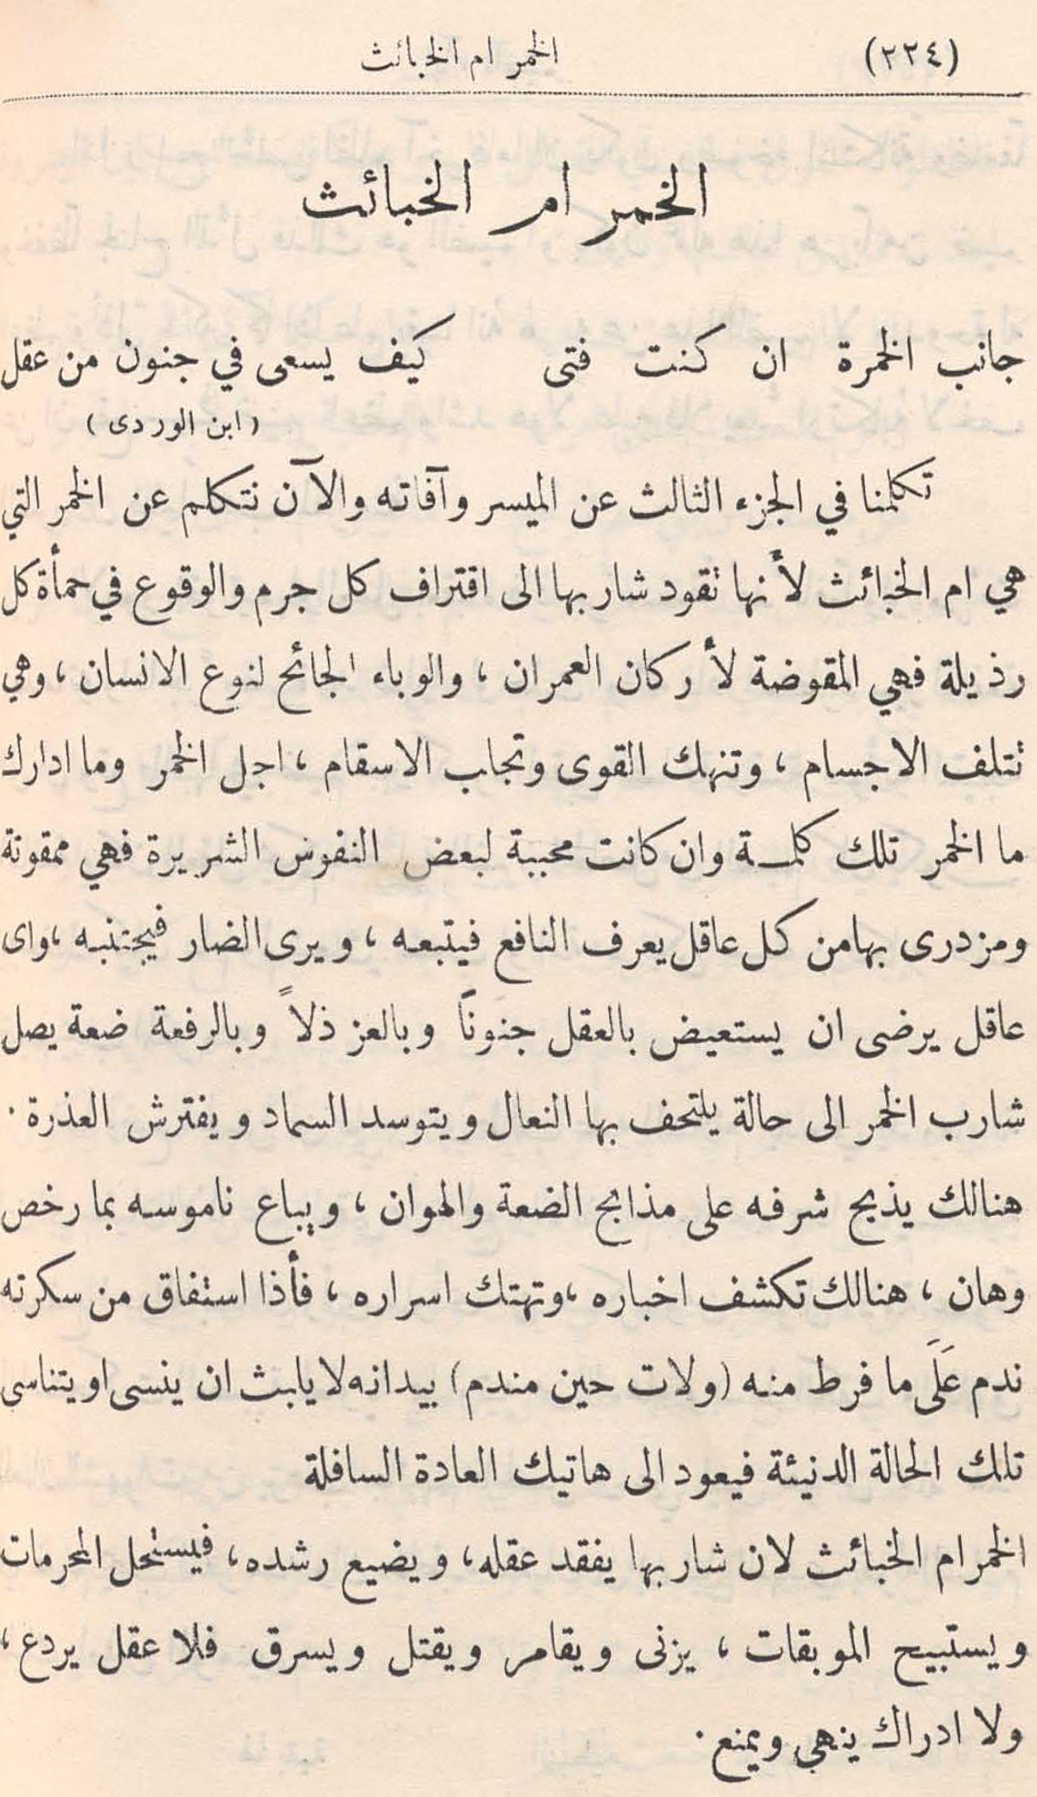 (٢٢٤) الخمر ام الخبائث
الخمر ام الخبائث
جانب الخمرة ان كنت فتى كيف يسعى في جنون من عقل
(ابن الوردى)
تكلمنا في الجزء الثالث عن الميسر وآفاته والآن نتكلم عن الخمر التي
هي ام الخبائث لأنها تقود شاربها الى اقتراف كل جرم والوقوع في حمأة كل
رذيلة فهي المقوضة لأركان العمران ، والوباء الجائح لنوع الانسان ، وهي
تتلف الاجسام ، وتنهك القوى وتجلب الاسقام ، اجل الخمر وما ادارك
ما الخمر تلك كلمـــة وان كانت محببة لبعض النفوس الشريرة فهي ممقوتة
ومزدرى بها من كل عاقل يعرف النافع فيتبعه ، ويرى الضار فيجتنبه ، واى
عاقل يرضى ان يستعيض بالعقل جنوناً وبالعز ذلاً وبالرفعة ضعة يصل
شارب الخمر الى حالة يلتحف بها النعال ويتوسد السماد ويفترش العذرة .
هنالك يذبح شرفه على مذابح الضعة والهوان ، ويباع ناموسه بما رخص
وهان ، هنالك تكشف اخباره ، وتهتك اسراره ، فأذا استفاق من سكرته
ندم عَلَى ما فرط منه (ولات حين مندم) بيدانه لا يلبث ان ينسى او يتناسى
تلك الحالة الدنيئة فيعود الى هاتيك العادة السافلة
الخمر ام الخبائث لان شاربها يفقد عقله ، ويضيع رشده ، فيستحل المحرمات
ويستبيح الموبقات ، يزنى ويقامر ويقتل ويسرق فلا عقل يردع ،
ولا ادراك ينهي ويمنع .